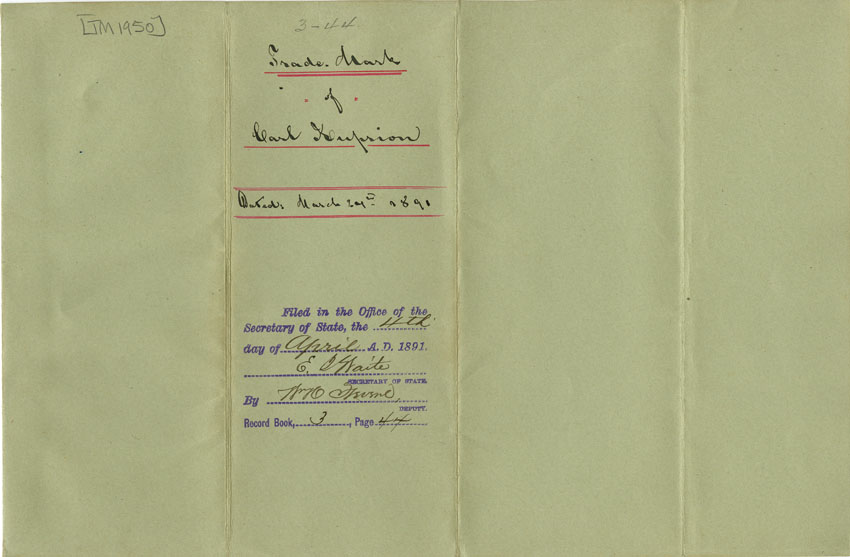 [TM 1950]
3-44.
Trade. Mark
of
Carl Kuprion
Dated: March 1891
Filed in the Office of the
Secretary of State, the 4th
day of April A.D. 1891.
E. J. Waite
SECRETARY OF STATE.
By W. O. 
DEPUTY.
Record Book, 3, Page 44